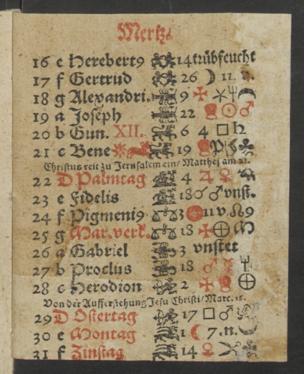 Mertz.
16 e Herebert9 14 trübfeucht
17 f Gertrud 26 ☽ 11.
18 g Alexandri. 9
19 a Joseph 22 ☉ ♂
20 b Gun. XII. 6 4 □ ♄
21 c Bene 19
Christus reit zu Jerusalem ein/ Matthej am 21.
22 D Palmtag 4 ♃ ♀ ☌
23 e Fidelis 18 ☌ ♂ vnst.
24 f Pigmeni9 11 v. ☊ 9
25 g Mar. verk. 18
26 a Gabriel 3 vnstet
27 b Proclus 18 ♂
28 c Herodion 2
Von der Aufferstehung Jesu Christi/ Marc. 16.
29 D Ostertag 17 □ ♂
30 e Montag 1 ☾ 7. n.
31 f Zinstag 14 ♀